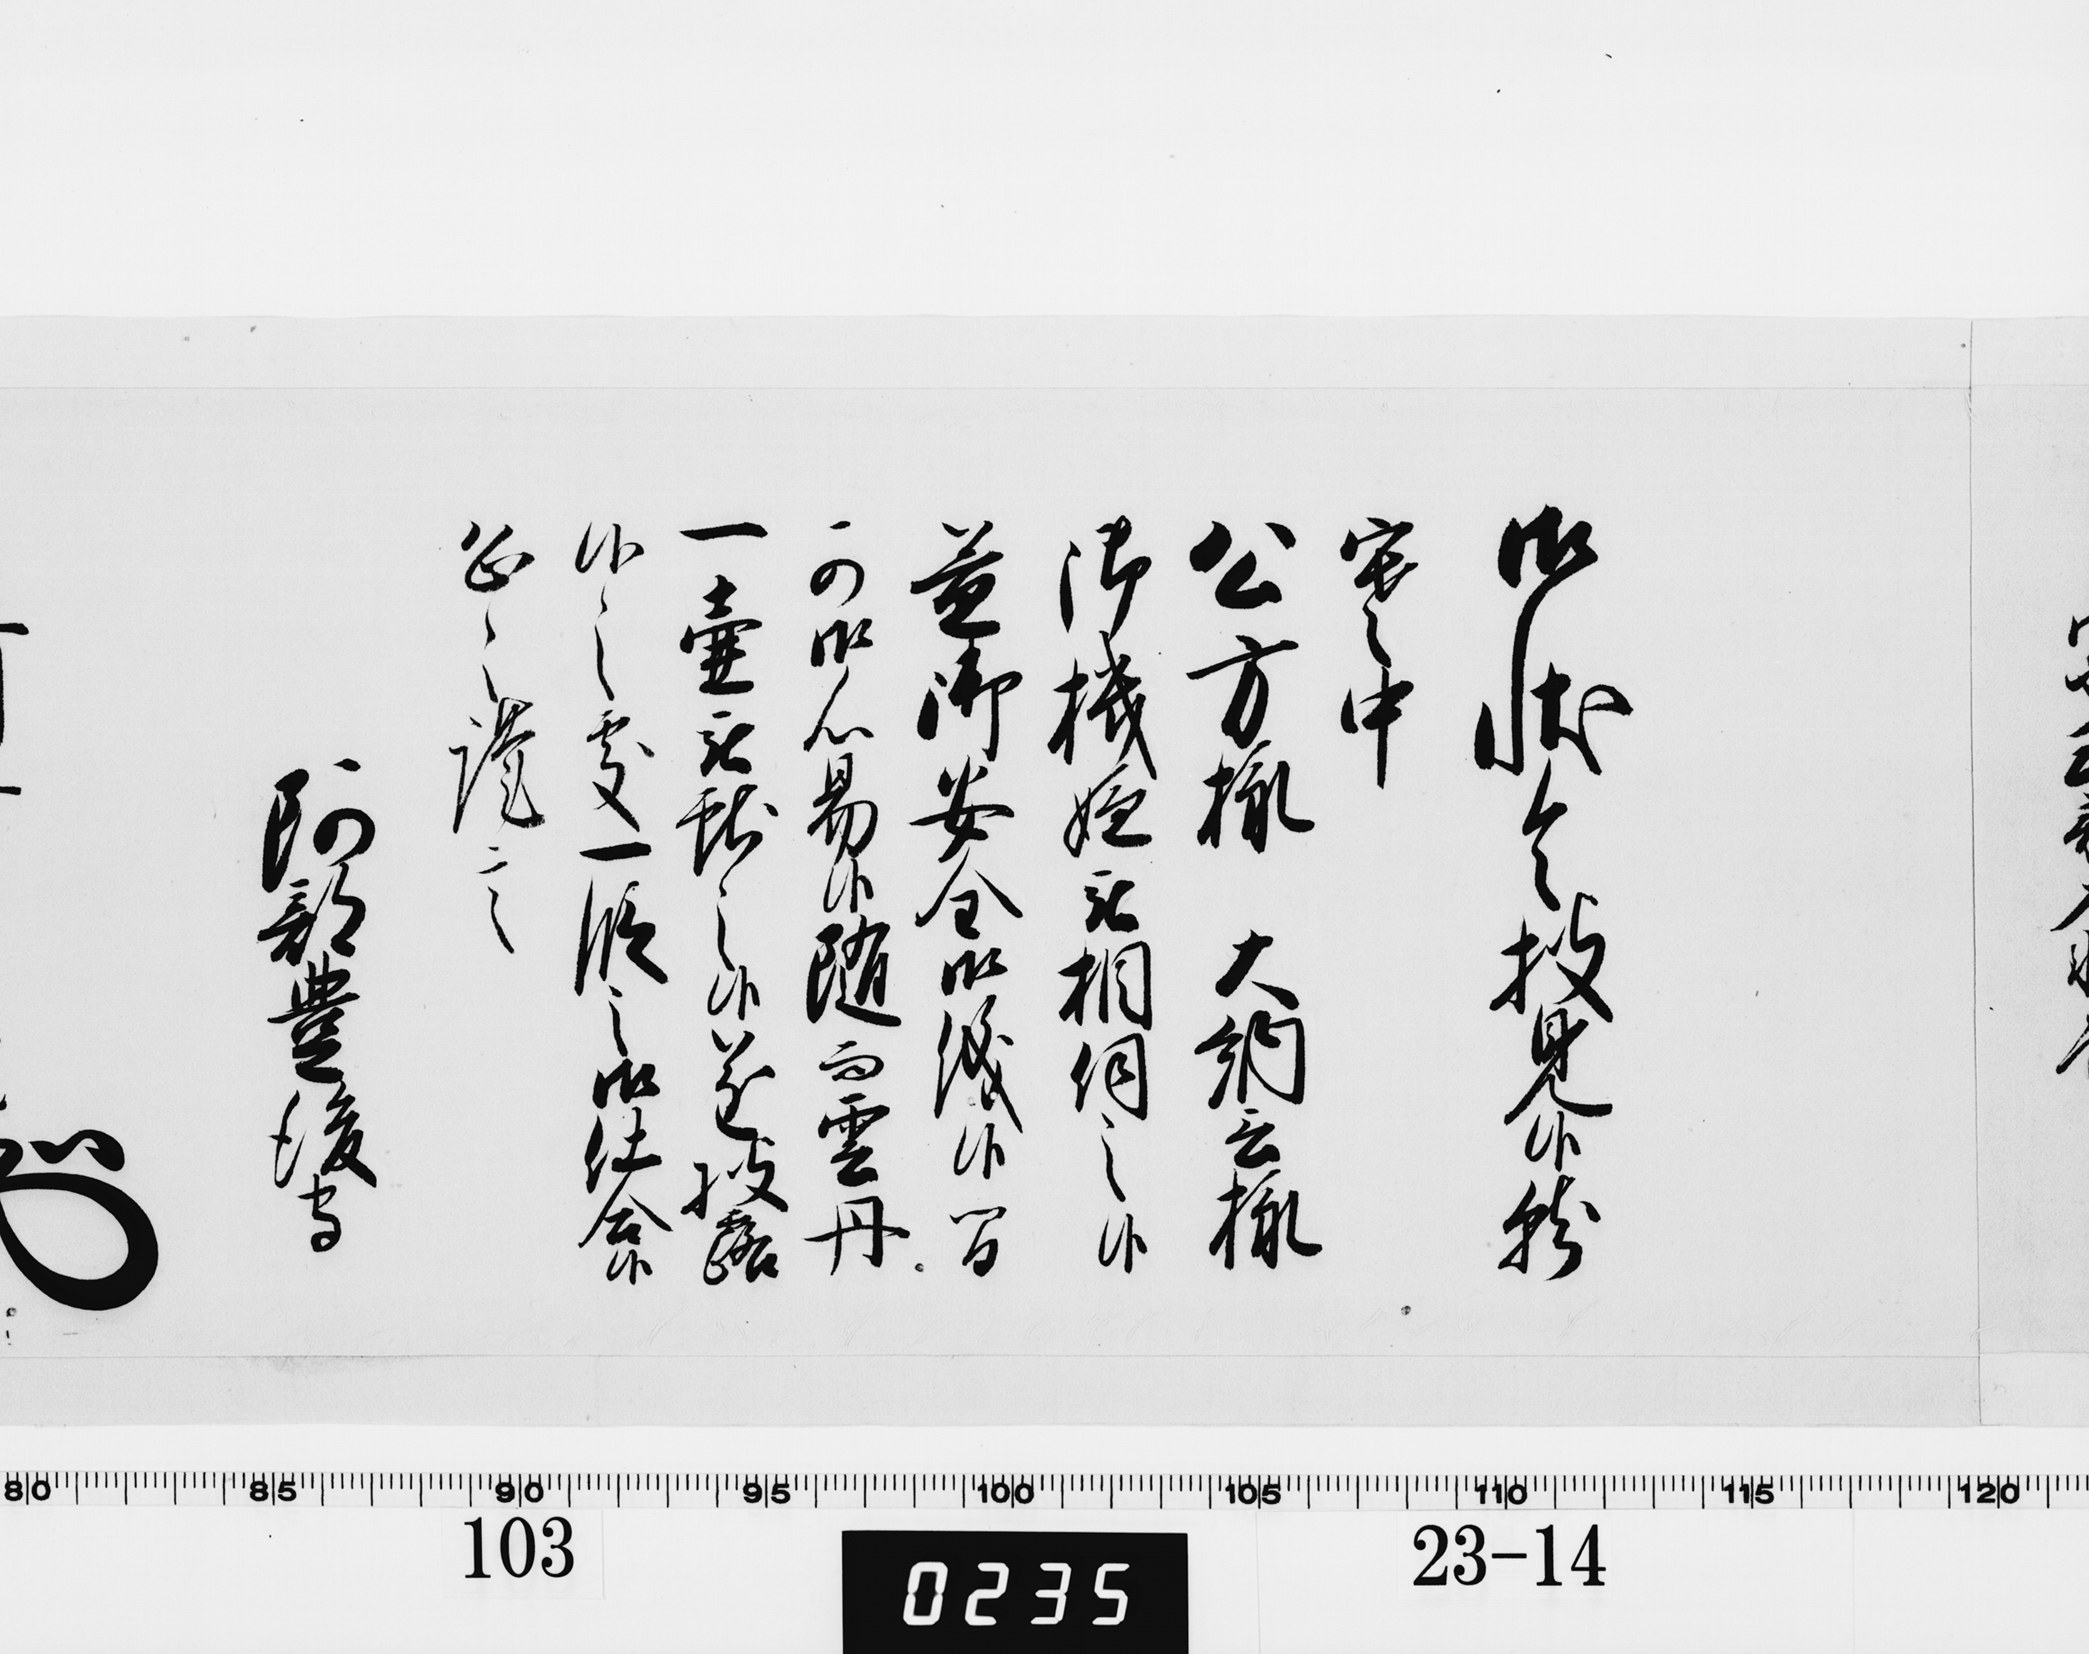 御状令披見候然者
寒之中
公方様　大納言様
御機嫌被相伺之候
益御安全御儀候間
可御心易候随而雲丹
一壷被献之候遂披露
候之處一段之御仕合候
恐々謹言
阿部豊後守
80 85 90 95 100 105 110 115 120
103
0235
23-14